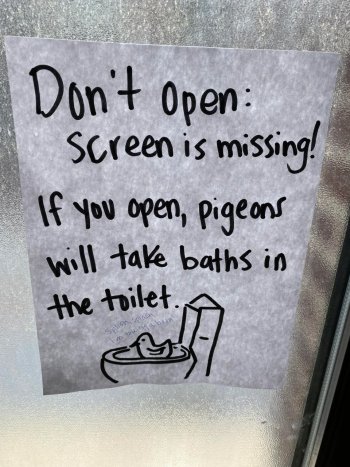 Don't open:
Screen is missing!
If you open, pigeons
will take baths in
the toilet.